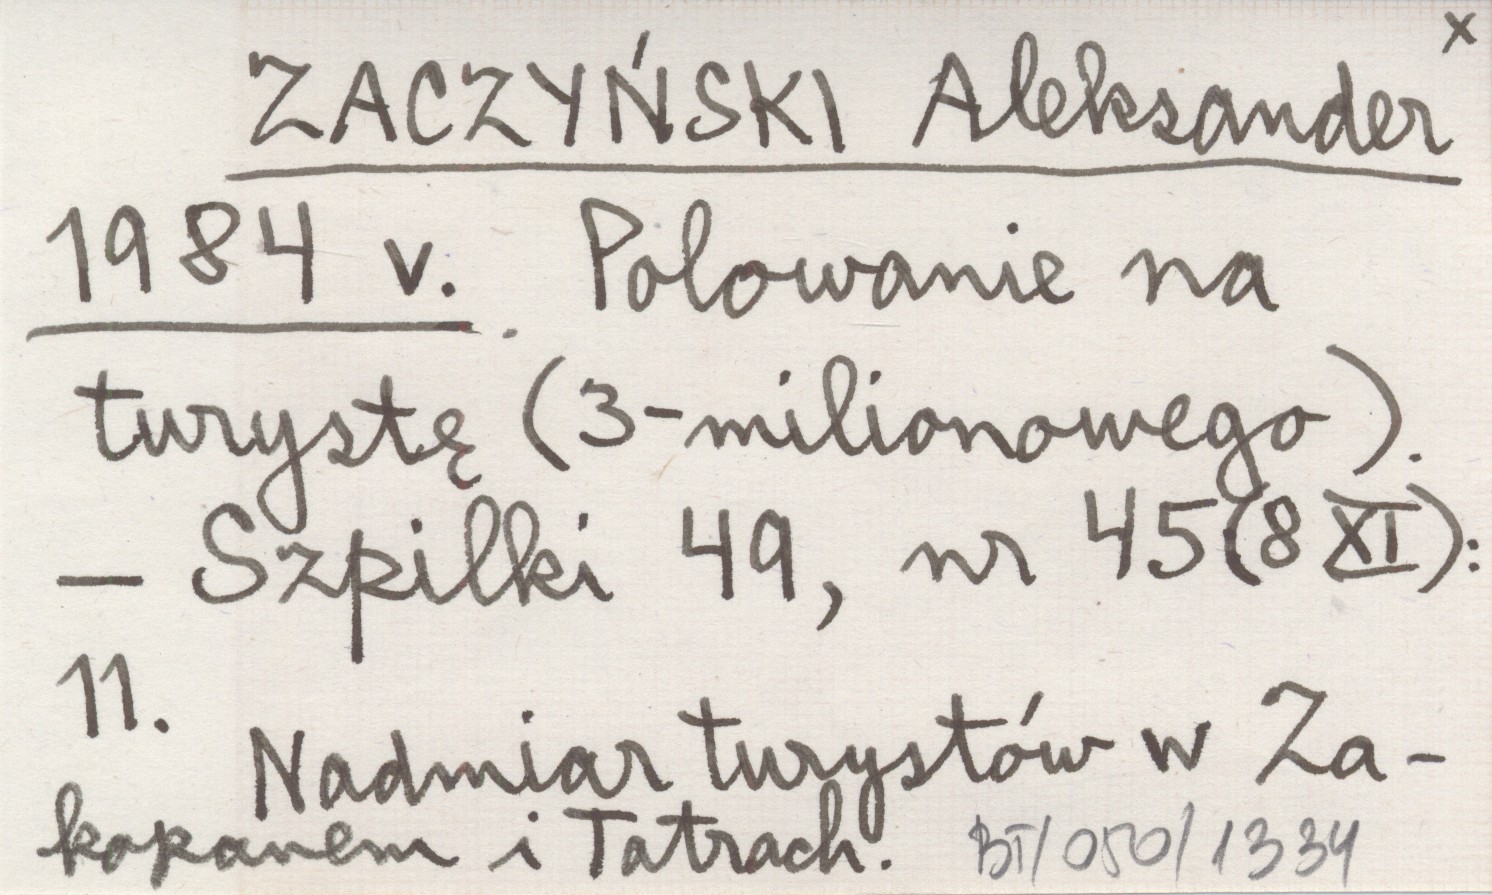 x
ZACZYŃSKI Aleksander
1984 v. Polowanie na
turystę (3-milionowego).
— Szpilki 49, nr 45(8 XI):
11.
Nadmiar turystów w Za-
kopanem i Tatrach. BT/050/1334